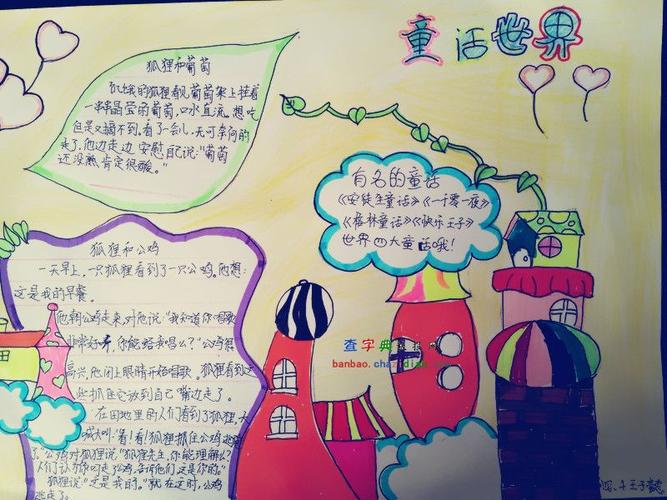 童话世界
狐狸和葡萄
饥饿的狐狸看见葡萄架上挂着
一串串晶莹的葡萄,口水直流,想吃
但是又摘不到。看了一会儿,无可奈何的
走了,他边走边安慰自己说:"葡萄
还没熟肯定很酸。"
有名的童话
《安徒生童话》《一千零一夜》
《格林童话》《快乐王子》
世界四大童话哦!
狐狸和公鸡
一天早上,一只狐狸看到了一只公鸡。他想:
这是我的早餐。
他朝公鸡走来,对他说:"我知道你唱歌
非常好听,你能给我唱么?"公鸡很
高兴,他闭上眼睛开始唱歌。狐狸看到这
些抓住它放到自己嘴边走了。
在田地里的人们看到了狐狸。大
喊大叫:"看!看!狐狸抓住公鸡逃
了。"公鸡对狐狸说:"狐狸先生,你能理解么?
人们认为你叼走了公鸡,告诉他们这是你的
狐狸说:"这是我的。"就在这时,公鸡
逃走了。
查字典
banbao.chazidian
四、4 王子